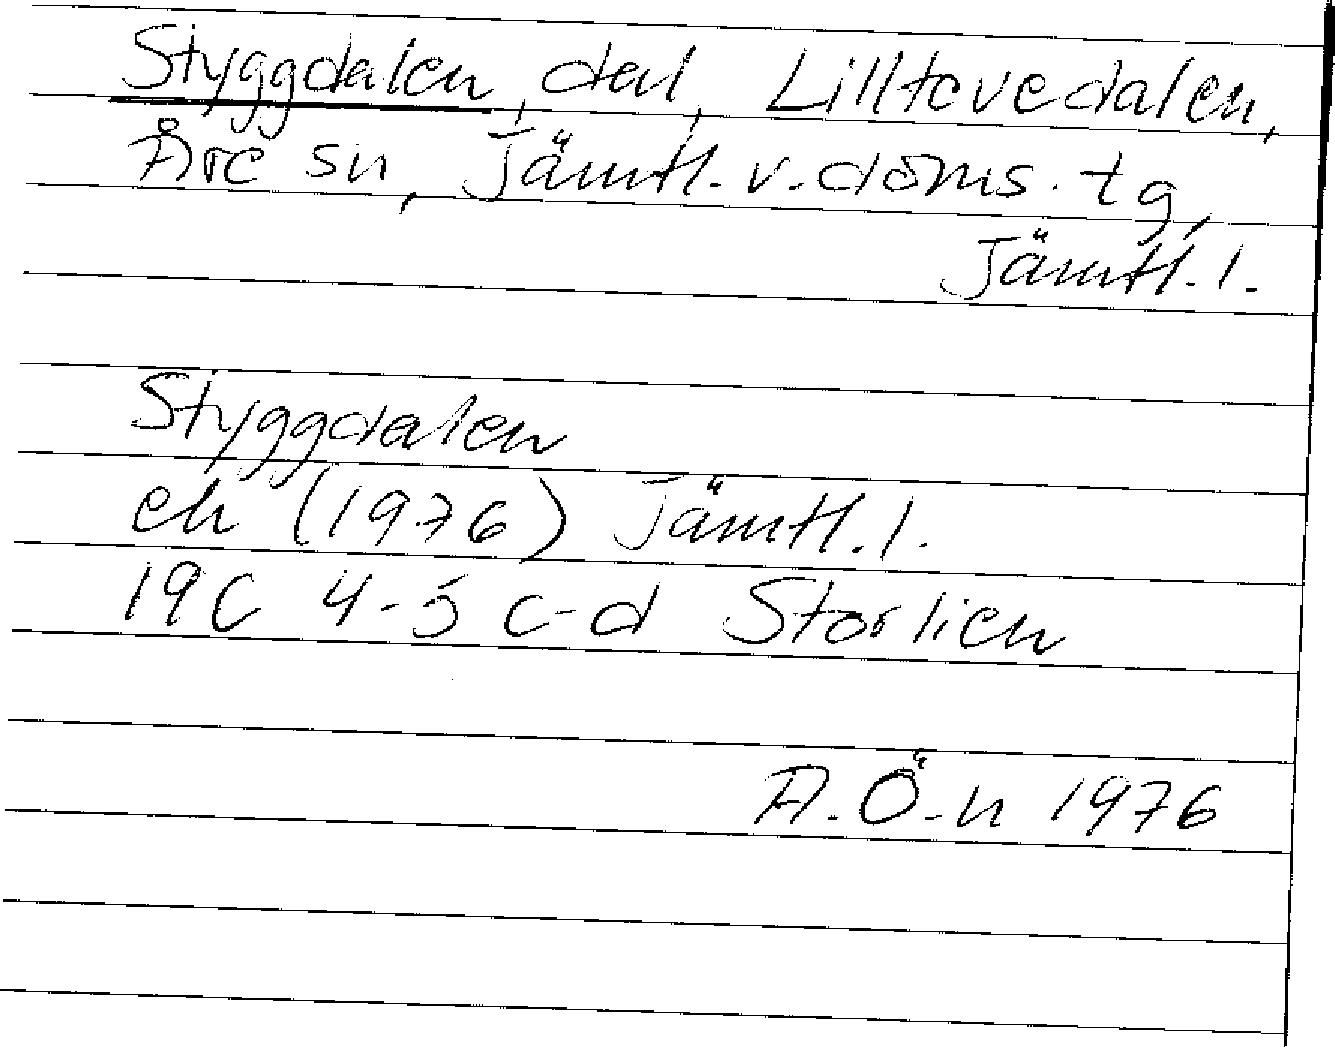 Styggdalen, dal, Lilltevedalen,
Åre sn, Jämtl. v. doms. tg,
Jämtl. l.
Styggdalen
ek (1976) Jämtl. l.
19C 4-5 c-d Storlien
A. Ö-n 1976